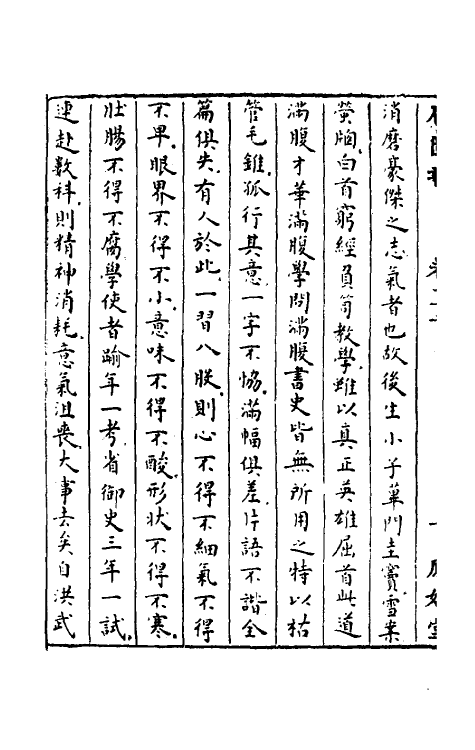 消磨豪傑之志氣者也故後生小子蓽門圭竇雪案
螢牕白首窮經負笥教學雖以真正英雄屈首此道
滿腹才華滿腹學問滿腹書史皆無所用之特以枯
管毛錐孤行其意一字不恊滿幅俱差片語不諧全
篇俱失有人於此一習八股則心不得不細氣不得
不卑眼界不得不小意味不得不酸形狀不得不寒
壯腸不得不腐學使者踰年一考省御史三年一試
連赴數科則精神消耗意氣沮喪大事去矣自洪武